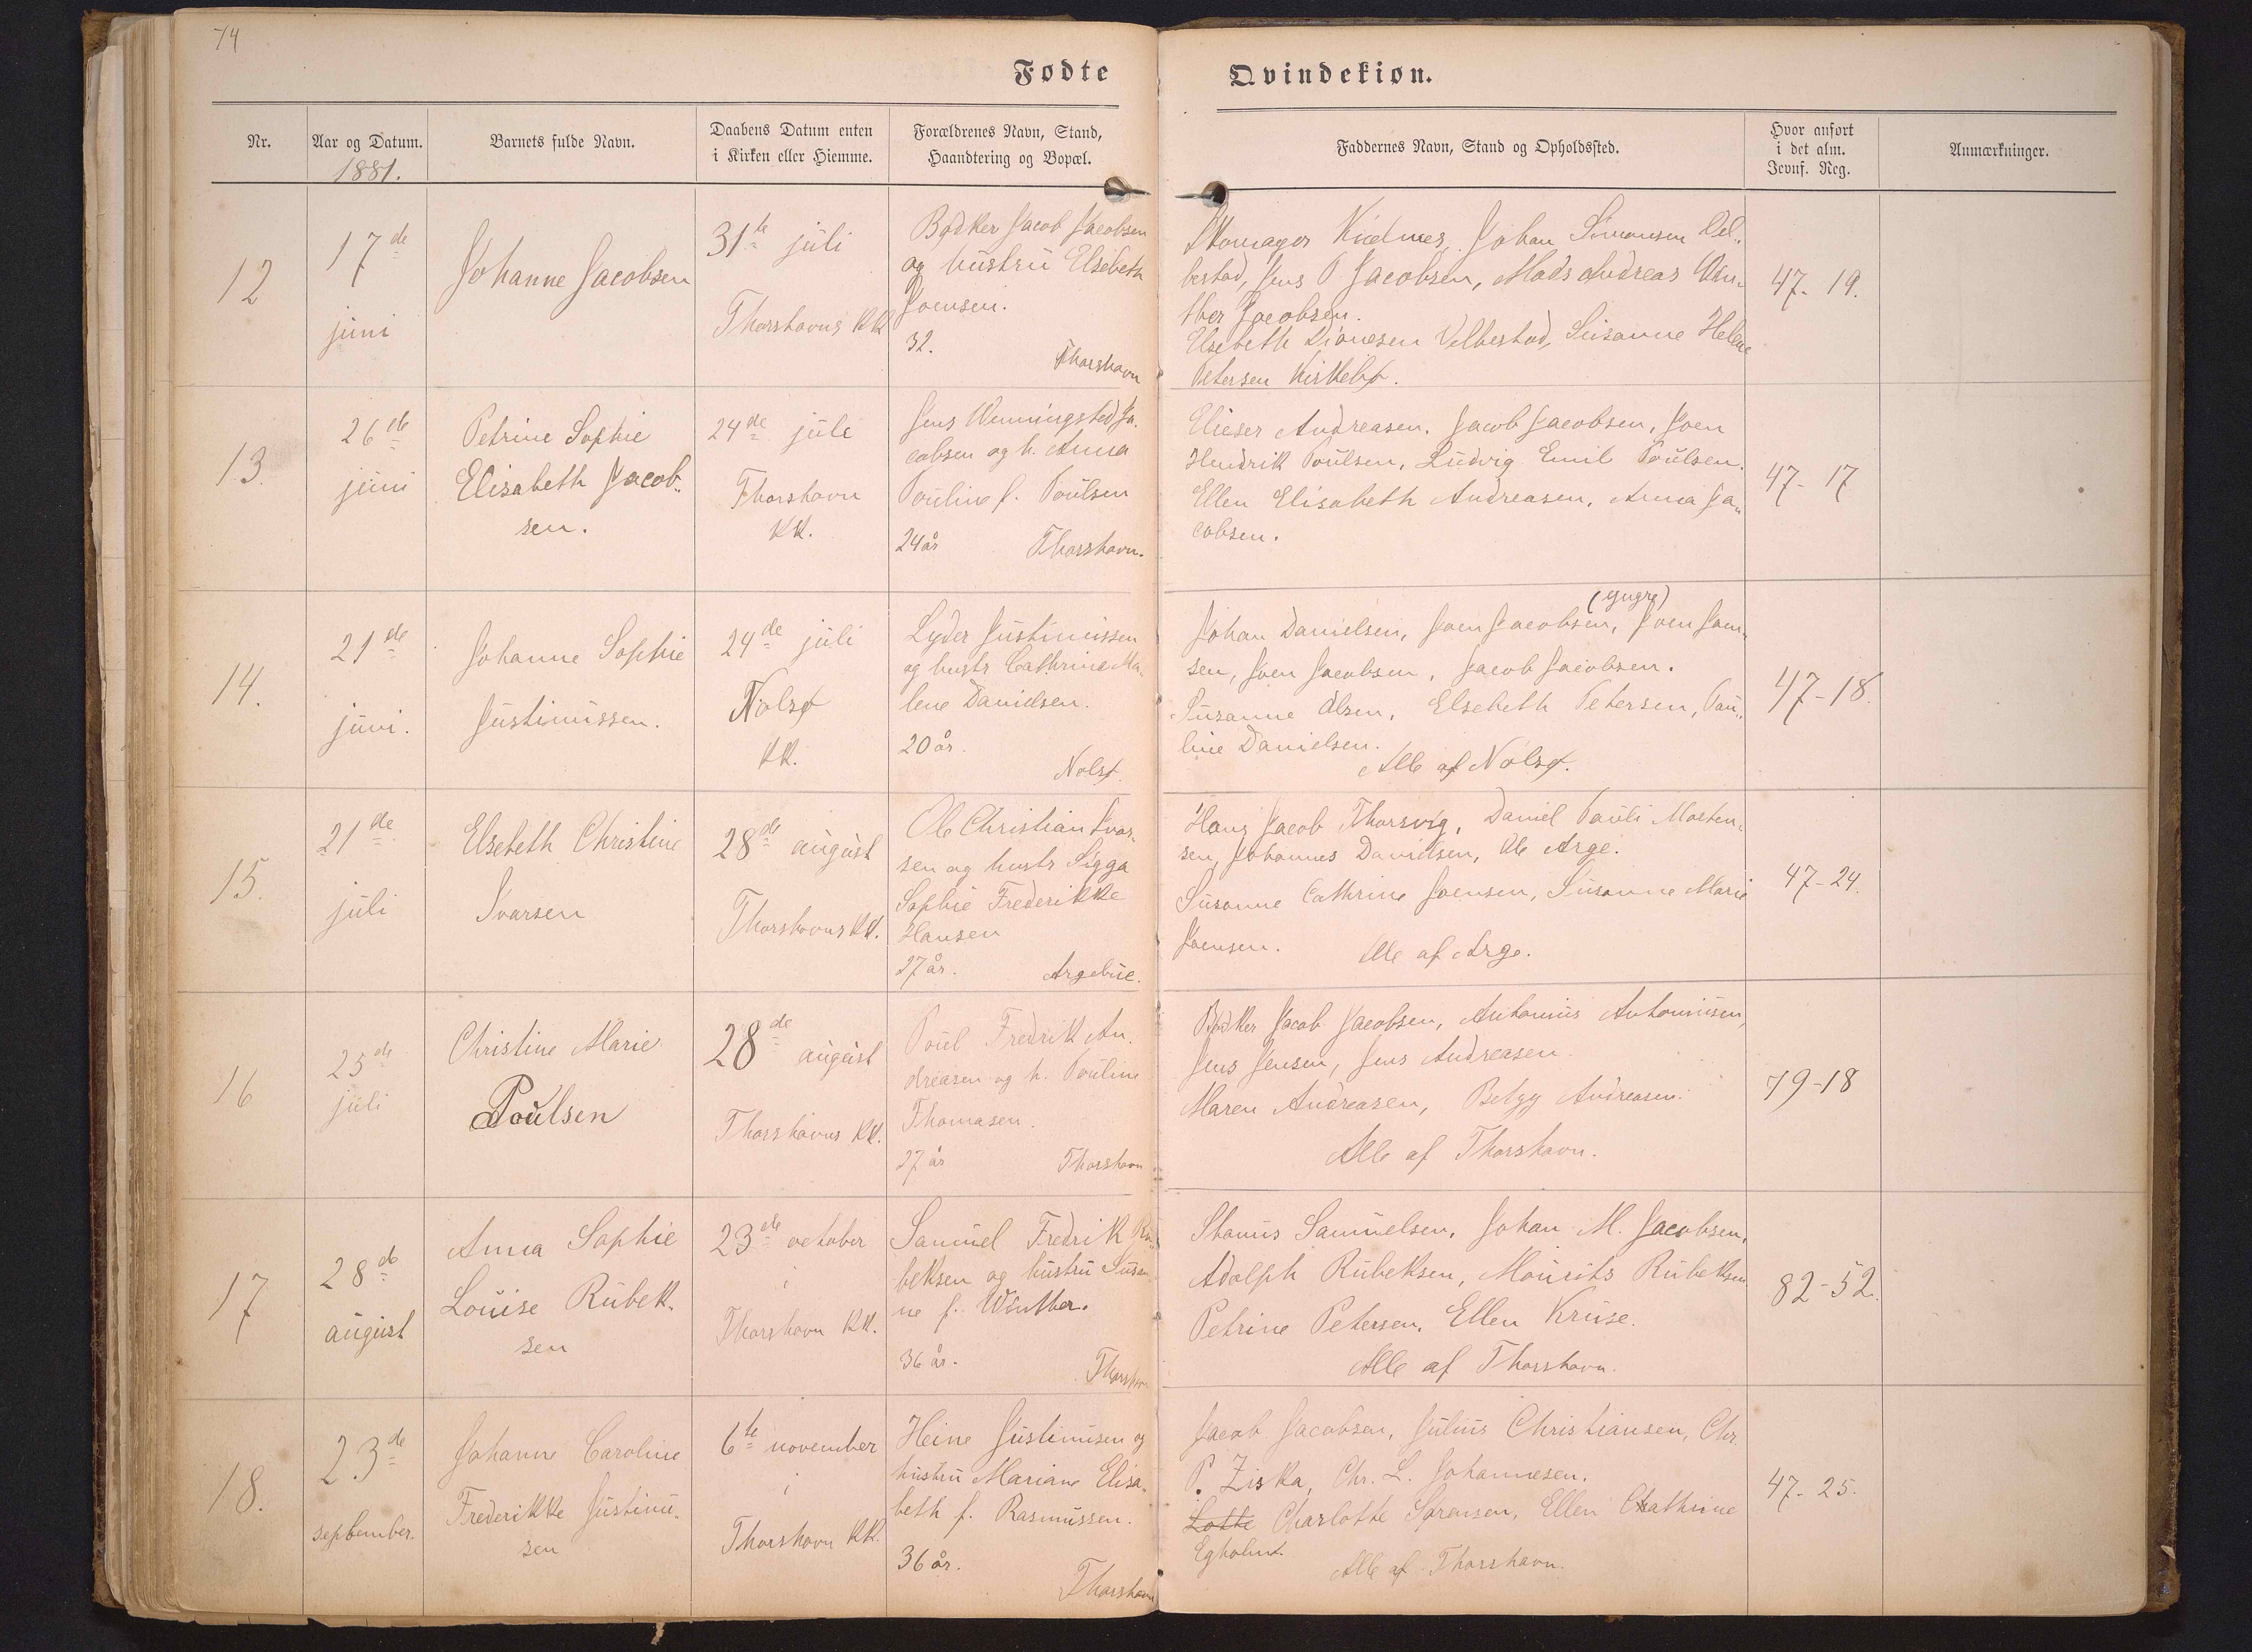 74
Fødte Qvindekiøn.
Nr.
Aar og Datum.
1881.
Barnets fulde Navn.
Daabens Datum enten
i Kirken eller Hiemme.
Forældrenes Navn, Stand,
Haandtering og Bopæl.
Faddernes Navn, Stand og Opholdssted.
Hvor anført
i det alm.
Jevnf. Reg.
Anmærkninger.
12
17de
juni
Johanne Jacobsen
31te juli
Thorshavns KK
Bødker Jacob Jacobsen
og hustru Elsebeth
Joensen.
32.
Thorshavn
Skomager Johan Simonsen Vel-
bestad, Jens P. Jacobsen, Mads Andreas Win-
ther Jacobsen.
Elsebeth Velbestad, Susanne Helene
Petersen Kirkebø.
47- 19.
13.
26de
juni
Petrine Sophie
Elisabeth Jacob-
sen.
24de juli
Thorshavn
KK.
Jens Wenningsted Ja-
cobsen og h. Anna
Pouline f. Poulsen
24 år
Thorshavn.
Elieser Andreasen, Jacob Jacobsen, Joen
Hendrik Poulsen, Ludvig Emil Poulsen.
Ellen Elisabeth Andreasen, Anna Ja-
cobsen.
47- 17
14.
21de
juni.
Johanne Sophie
Justinussen.
24de juli
Nolsø
KK.
Lyder Justinussen
og hustr Cathrine Ma-
lene Danielsen.
20 år.
Nolsø.
(yngre)
Johan Danielsen, Joen Jacobsen, Joen Joen-
sen, Joen Jacobsen, Jacob Jacobsen.
Susanne Olsen, Elsebeth Petersen, Pau-
line Danielsen.
Alle af Nolsø.
47-18.
15.
21de
juli
Elsebeth Christine
Ivarsen
28de august
Thorshavns KK.
Ole Christian Ivar-
sen og hustr Sigga
Sophie Frederikke
Hansen
27 år.
Argebue.
Hans Jacob Thorsvig, Daniel Pauli Morten-
sen, Johannes Davidsen, Ole Arge.
Susanne Cathrine Joensen, Susanne Marie
Joensen.
Alle af Arge.
47-24.
16
25de
juli
Christine Marie
Poulsen
28de august
Thorshavns KK.
Poul Fredrik An-
dreasen og h. Pouline
Thomasen.
27 år
Thorshavn
Bødker Jacob Jacobsen, Anthonius Anthoniusen,
Jens Jensen, Jens Andreasen
Maren Andreasen, Betzy Andreasen.
Alle af Thorshavn.
79-18
17
28de
august
Anna Sophie
Louise Rubek-
sen
23de october
i
Thorshavn KK.
Samuel Fredrik Ru-
beksen og hustru Susan-
ne f. Winther.
36 år.
Thorshavn
Stanus Samuelsen, Johan M. Jacobsen,
Adolph Rubeksen, Mourits Rubeksen
Petrine Petersen, Ellen Kruse.
Alle af Thorshavn.
82-52.
18.
23de
september.
Johanne Caroline
Frederikke Justinu-
sen
6te november
i
Thorshavn KK.
Heine Justinusen og
hustru Mariane Elisa-
beth f. Rasmussen.
36 år.
Thorshavn
Jacob Jacobsen, Julius Christiansen, Chr.
P. Ziska, Chr. L. Johannesen.
Lotte Charlotte Sørensen, Ellen Cathrine
Egholm.
Alle af Thorshavn.
47- 25.